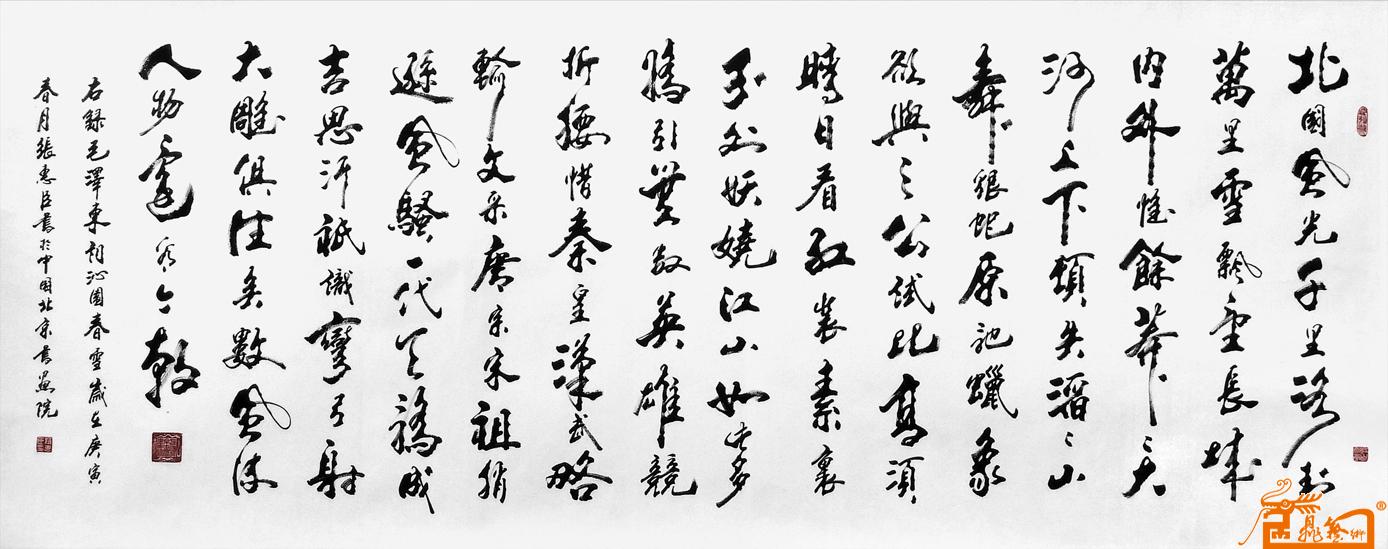 北國風光千里冰封
萬里雪飄望長城
内外惟餘莽莽大
河上下頓失滔滔山
舞銀蛇原馳蠟象
欲與天公試比高須
晴日看紅裝素裹
分外妖嬈江山如此多
嬌引無數英雄競
折腰惜秦皇漢武略
輸文采唐宗宋祖稍
遜風騷一代天驕成
吉思汗祇識彎弓射
大雕俱往矣數風流
人物還看今朝
右錄毛澤東詞沁園春雪歲在庚寅
春月張惠臣書於中國北京書畫院